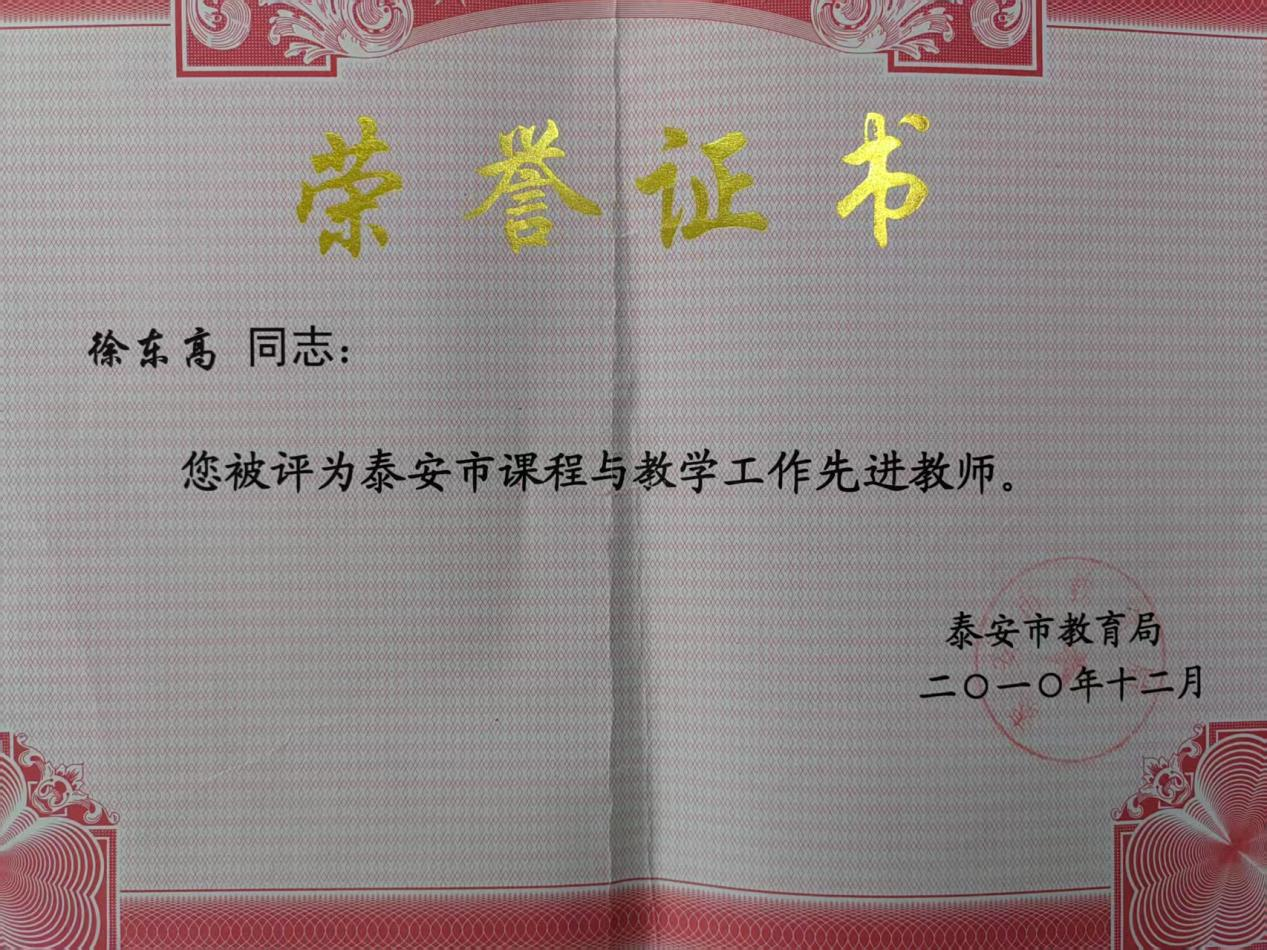 荣誉证书
徐东高 同志：
您被评为泰安市课程与教学工作先进教师。
泰安市教育局
二〇一〇年十二月